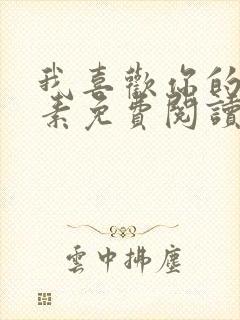 我喜歡你的
素免費閱讀
雲中拂塵